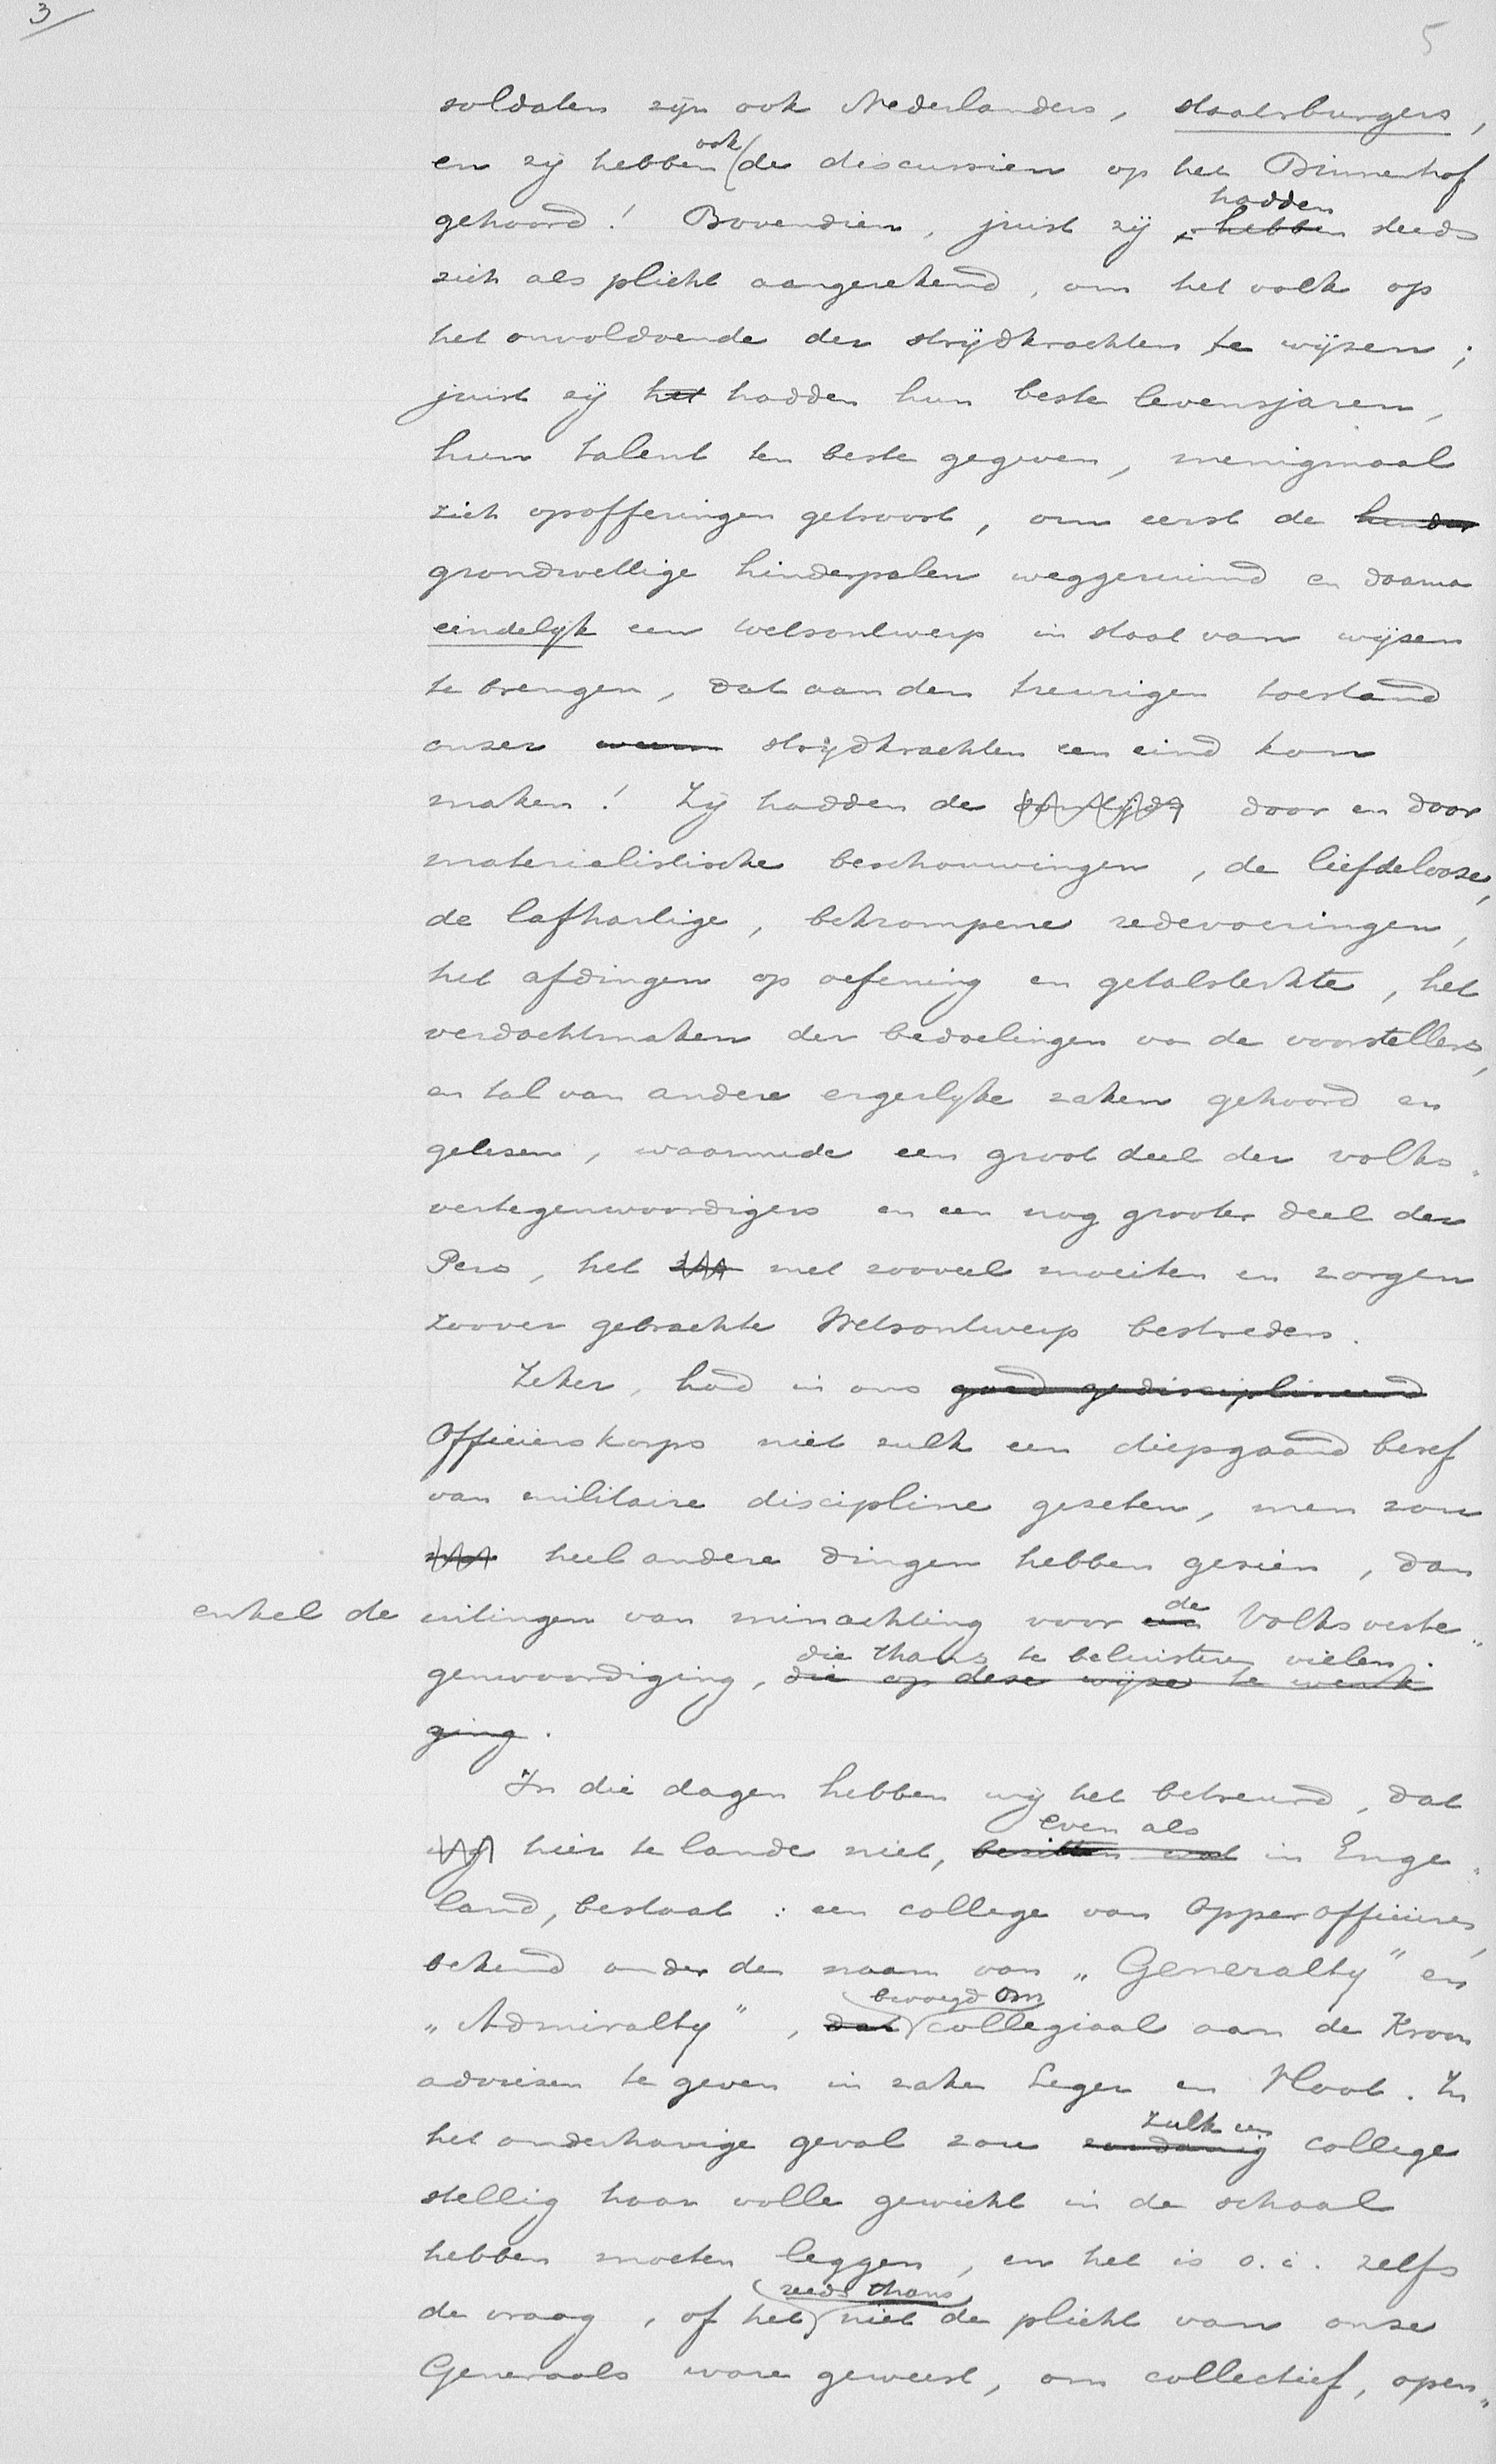 3
5
soldaten zijn ook Nederlanders, staatsburgers,
en zij hebben ook de discussien op het Binnenhof
gehoord! Bovendien, juist zij hadden hebben steeds
zich als plicht aangerekend, om het volk op
het onvoldoende der strijdkrachten te wijzen;
juist zij het hadden hun beste levensjaren,
hun talent ten beste gegeven, menigmaal
zich opofferingen getroost, om eerst de hinder
grondwettige hinderpalen weggeruimd en daarna
eindelijk een wetsontwerp in staat van wijzen
te brengen, dat aan den treurigen toestand
onzer strijdkrachten een eind kon
maken! Zij hadden de door en door
materialistische beschouwingen, de liefdelooze,
de lafhartige, bekrompene redevoeringen,
het afdingen op oefening en getalsterkte, het
verdachtmaken der bedoelingen van de voorstellers,
en tal van andere ergerlijke zaken gehoord en
gelezen, waarmede een groot deel der volks-
vertegenwoordigers en een nog grooter deel der
Pers, het met zooveel moeiten en zorgen
zoover gebrachte Wetsontwerp bestreden.
Zeker, had in ons goed gedisciplineerd
Officierskorps niet zulk een diepgaand besef
van militaire discipline gezeten, men zou
heel andere dingen hebben gezien, dan
enkel de uitingen van minachting voor de Volksverte-
genwoordiging, die thans te beluisteren vielen. die op deze wijze te werk
ging.
In die dagen hebben wij het betreurd, dat
wij hier te lande niet, even als bezitten wat in Enge-
land, bestaat: een college van Opperofficieren,
bekend onder den naam van „Generalty” en
„Admiralty”, dat bevoegd om collegiaal aan de Kroon
adviezen te geven in zake Leger en Vloot. In
het onderhavige geval zou zulk een zoodanig college
stellig haar volle gewicht in de schaal
hebben moeten leggen, en het is o.i. zelfs
de vraag, of het reeds thans niet de plicht van onze
Generaals ware geweest, om collectief, open-